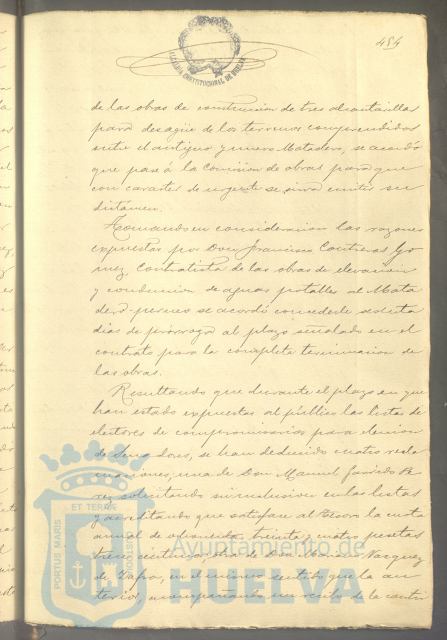 484
ALCALDIA CONSTITUCIONAL DE HUELVA
de las obras de construccion de tres alcantarillas
para desagüe de los terrenos comprendidos
entre el antiguo y nuevo Matadero, se acordó
que pase á la Comision de obras para que
con caracter de urgente se sirva emitir su
dictámen.
Tomando en consideracion las razones
expuestas por Don Francisco Contreras Go
mez, Contratista de las obras de elevacion
y conduccion de aguas potables al Mata
dero nuevo se acordó concederle
dias de prórroga al plazo señalado en el
contrato para la completa terminacion de
las obras.
Resultando que durante el plazo en que
han estado expuestas al público las listas de
electores de compromisarios para eleccion
de Senadores, se han deducido cuatro recla
maciones, una de Don Manuel Garrido Pe
rez solicitando su inclusion en las listas
y acreditando que satisface al Tesoro la cuota
anual de ochenta treinta y cuatro pesetas
de Don Vazquez
de Zafra, en el mismo sentido que la an
terior, acompañando un recibo de la contri
ET TERRAE
PORTUS MARIS
CUSTODIA
Ayuntamiento de
HUELVA